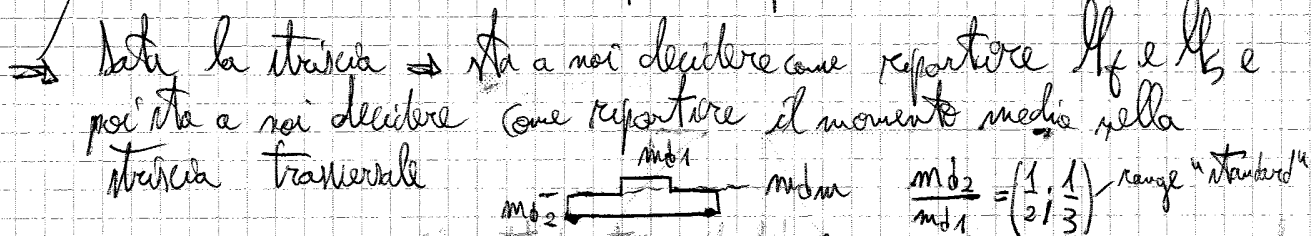 ⇒ Data la striscia ⇒ sta a noi decidere come ripartire Mf e Ms e
poi sta a noi decidere come ripartire il momento medio nella
striscia trasversale
md1
md2 mdm md2/md1 = (1/2 ; 1/3) range "standard"